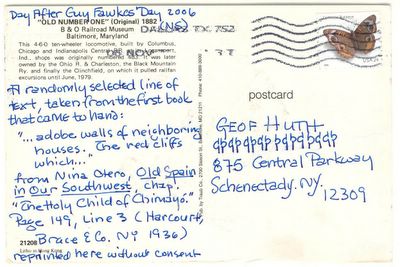 Day After Guy Fawkes' Day 2006
(NS)
"OLD NUMBER ONE" (Original) 1882
B & O Railroad Museum
Baltimore, Maryland
This 4-6-0 ten-wheeler locomotive, built by Columbus,
Chicago and Indianapolis Central
shops was originally numbered 483. It was later
owned by the Ohio R. & Charleston, the Black Mountain
Ry. and finally the Clinchfield, on which it pulled railfan
excursions until June, 1979.
DALLAS TX 752
06 NOV
A randomly selected line of
text, taken from the first book
that came to hand:
"...adobe walls of neighboring
houses. The red cliffs
which..."
from Nina Otero, Old Spain
in Our Southwest, chap.
"The Holy Child of Chimayó."
Page 149, Line 3 (Harcourt,
Brace & Co. NY 1936)
reprinted here without consent
21208
Litho in Hong Kong
postcard
GEOF HUTH
875 Central Parkway
Schenectady, NY.
12309